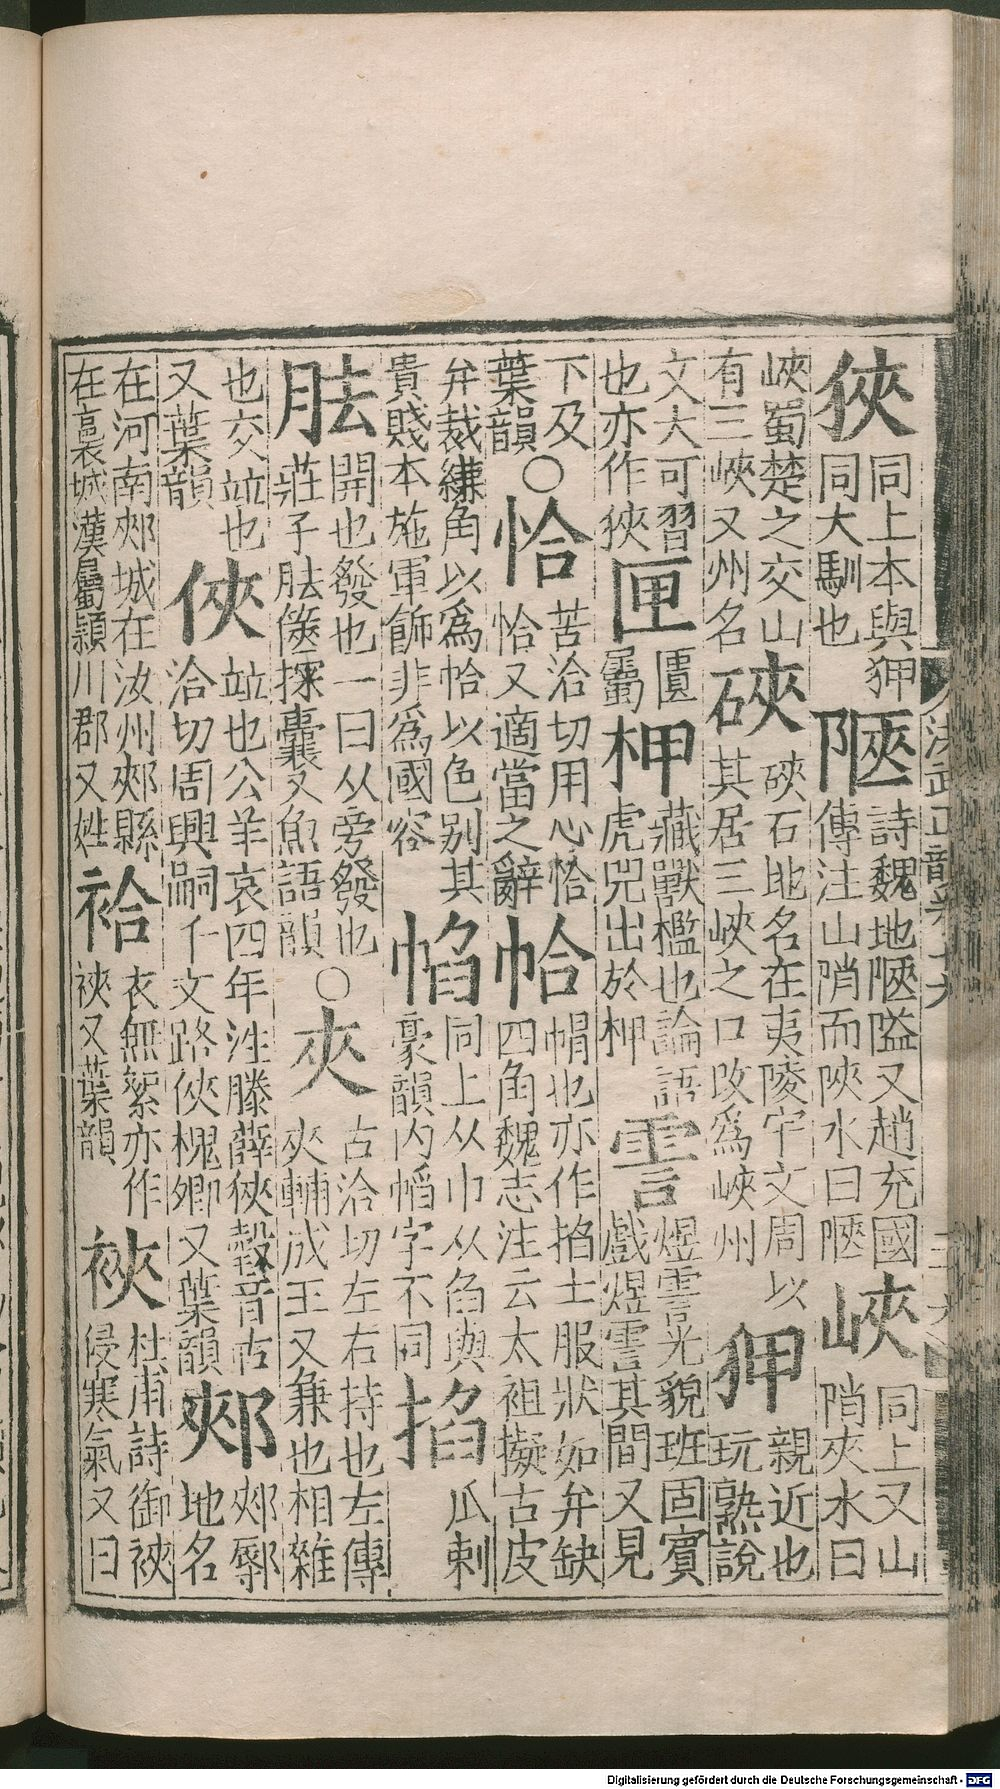 狹
同上本與狎
同大馴也
陿
詩魏地陿隘又趙充國
傳注山陗而陝水曰陿
峽
同上又山
陗夾水曰
峽蜀楚之交山
有三峽又州名
硤
硤石地名在夷陵宇文周以
其居三峽之口攺爲峽州
狎
親近也
玩熟說
文大可習
也亦作狹
匣
匱
屬
柙
藏獸檻也論語
虎兕出於柙
霅
煜霅光貌班固賓
戲煜霅其間又見
下及
葉韻
○恰
苦洽切用心恰
恰又適當之辭
帢
帽也亦作㡊士服狀如弁缺
四角魏志注云太祖擬古皮
弁裁縑角以爲恰以色别其
貴賤本施軍飾非爲國容
㡊
同上从巾从臽與
豪韻内幍字不同
掐
爪刺
胠
開也發也一曰从旁發也
莊子胠篋探囊又魚語韻
○夾
古洽切左右持也左傳
夾輔成王又兼也相雜
也交竝也
又葉韻
俠
竝也公羊哀四年注滕薛俠轂音古
洽切周興嗣千文路俠槐卿又葉韻
郟
郟鄏
地名
在河南郟城在汝州郟縣
在襄城漢屬潁川郡又姓
袷
衣無絮亦作
裌又葉韻
裌
杜甫詩御裌
侵寒氣又曰
洪武正韻卷十六
Digitalisierung gefördert durch die Deutsche Forschungsgemeinschaft - DFG